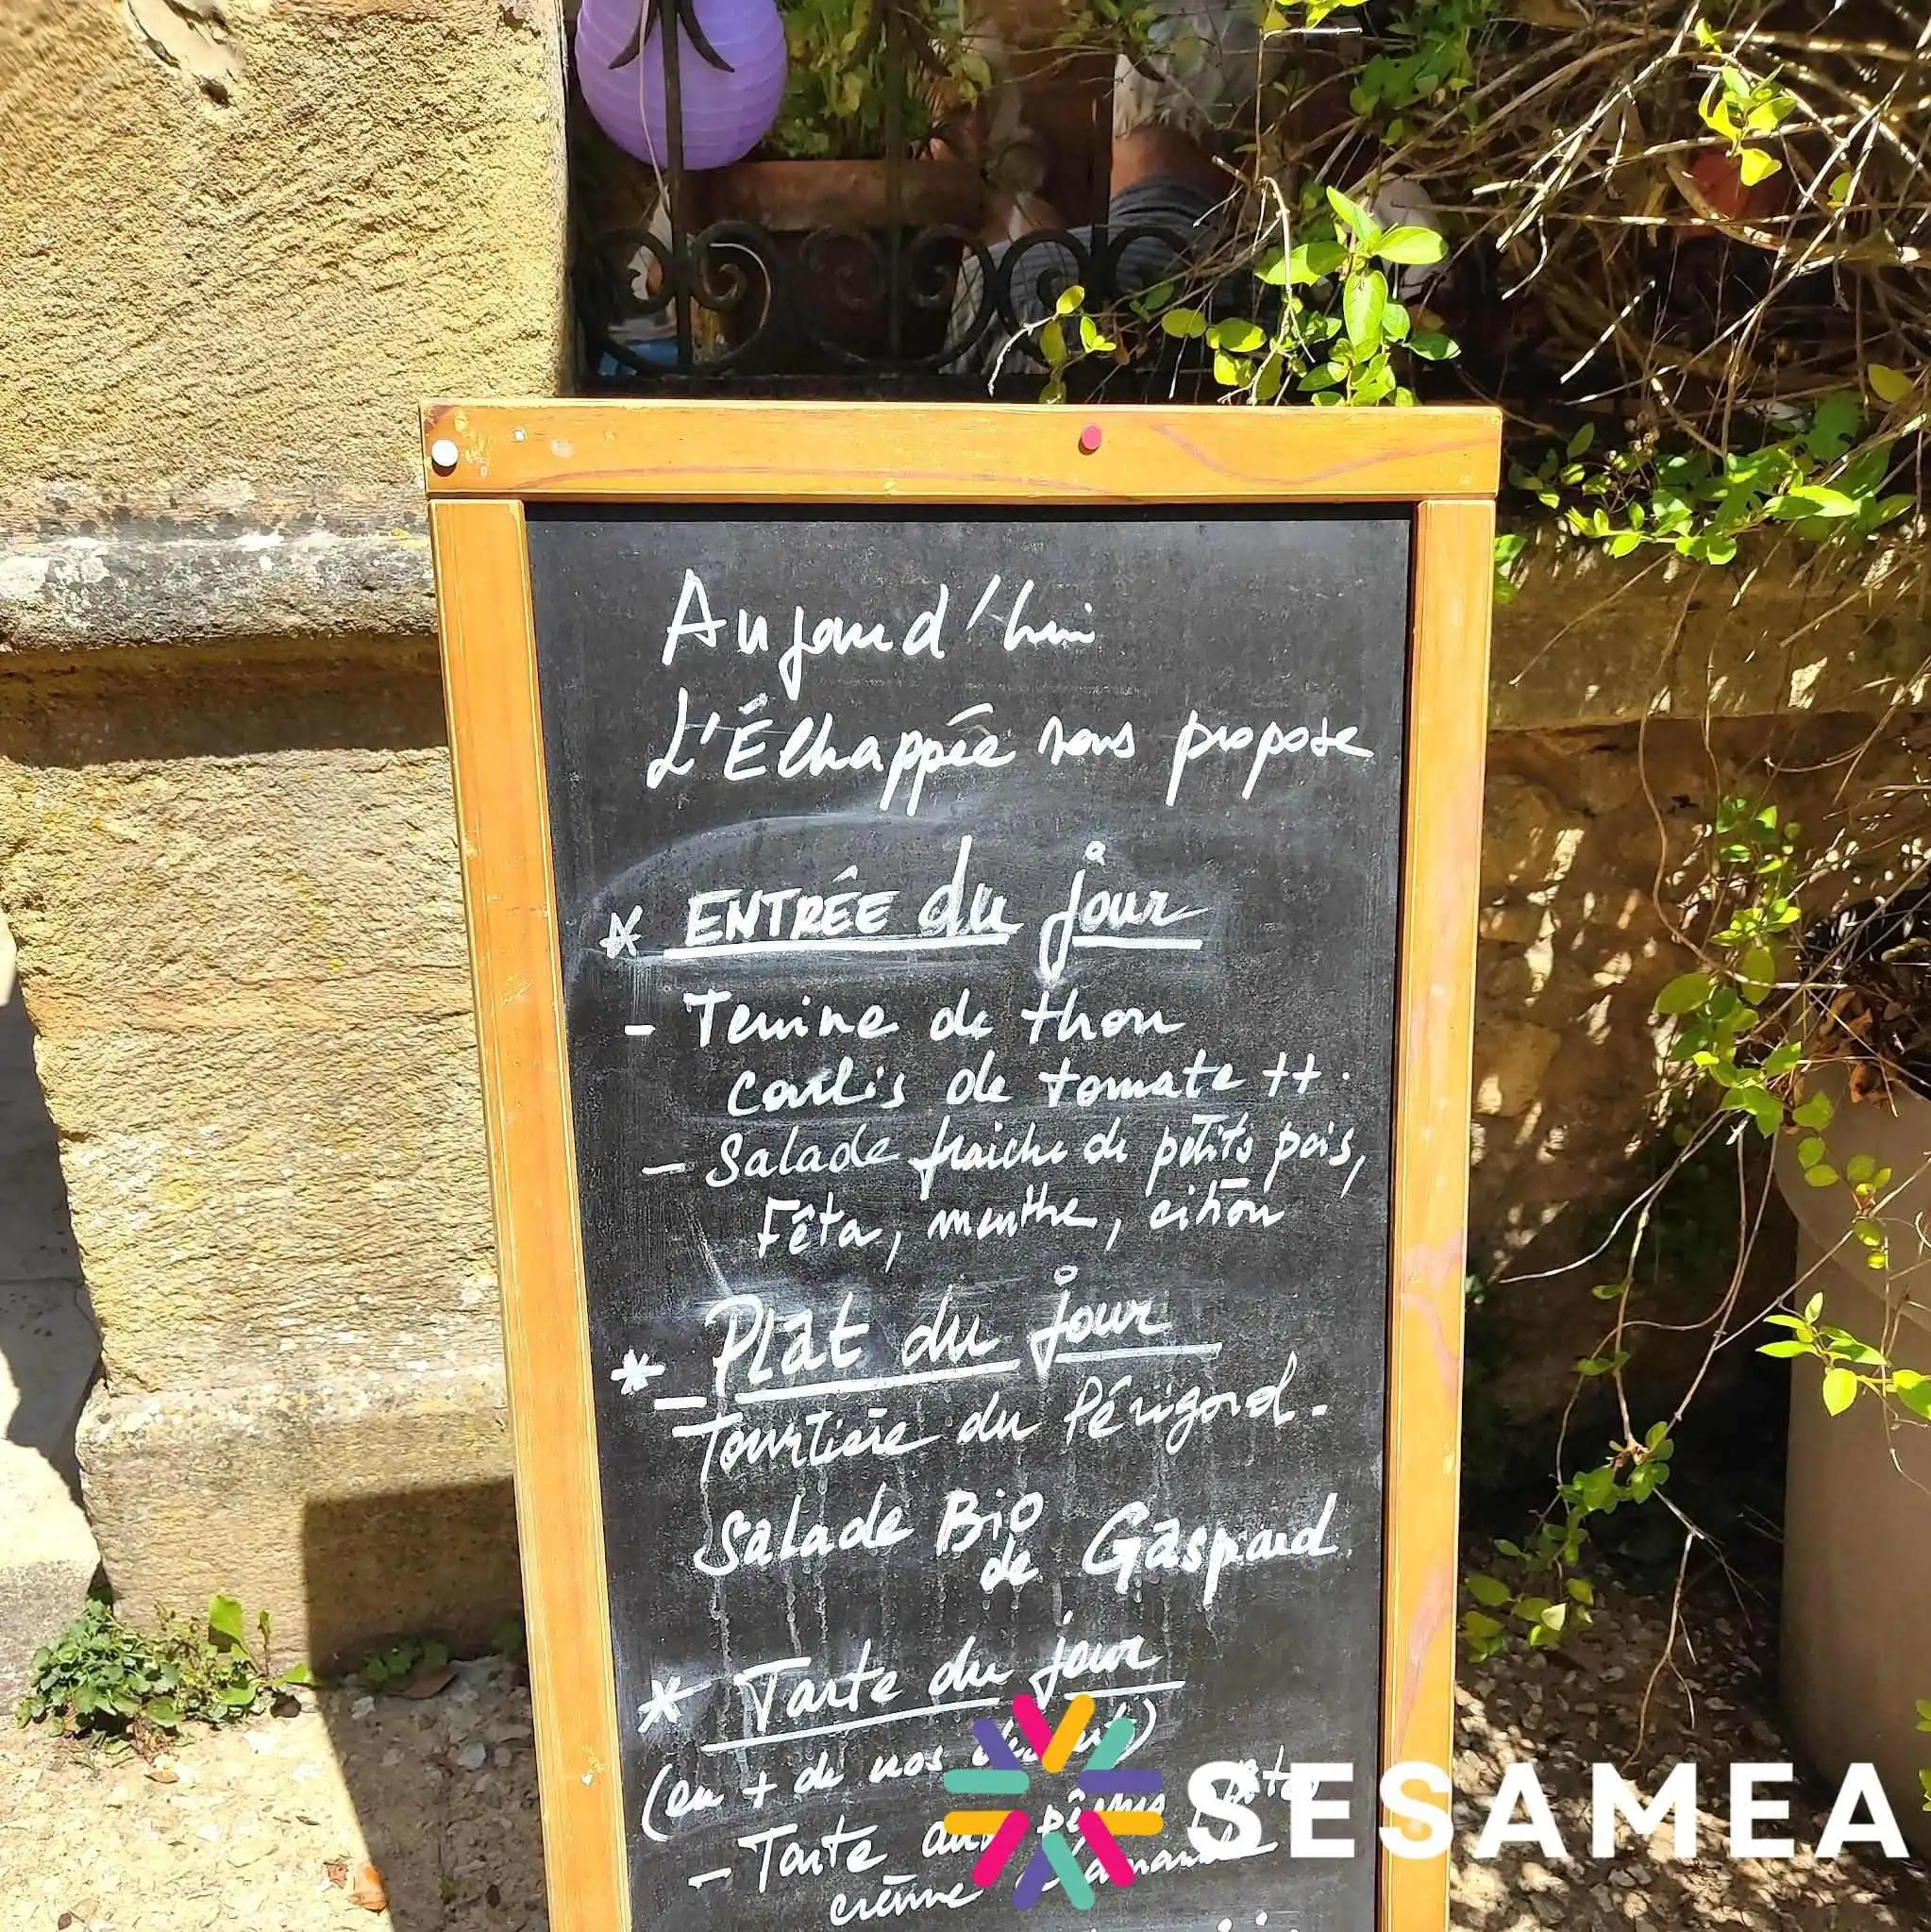 Aujourd'hui
L'Échappée vous propose
* ENTRÉE du jour
- Terrine de thon
coulis de tomate ++.
- Salade fraiche de petits pois,
Fêta, menthe, citron
* Plat du jour
- Tourtière du Périgord.
Salade Bio
de Gaspard.
* Tarte du jour
(en + de nos
- Tarte aux pêches
crème d'amande
SESAMEA